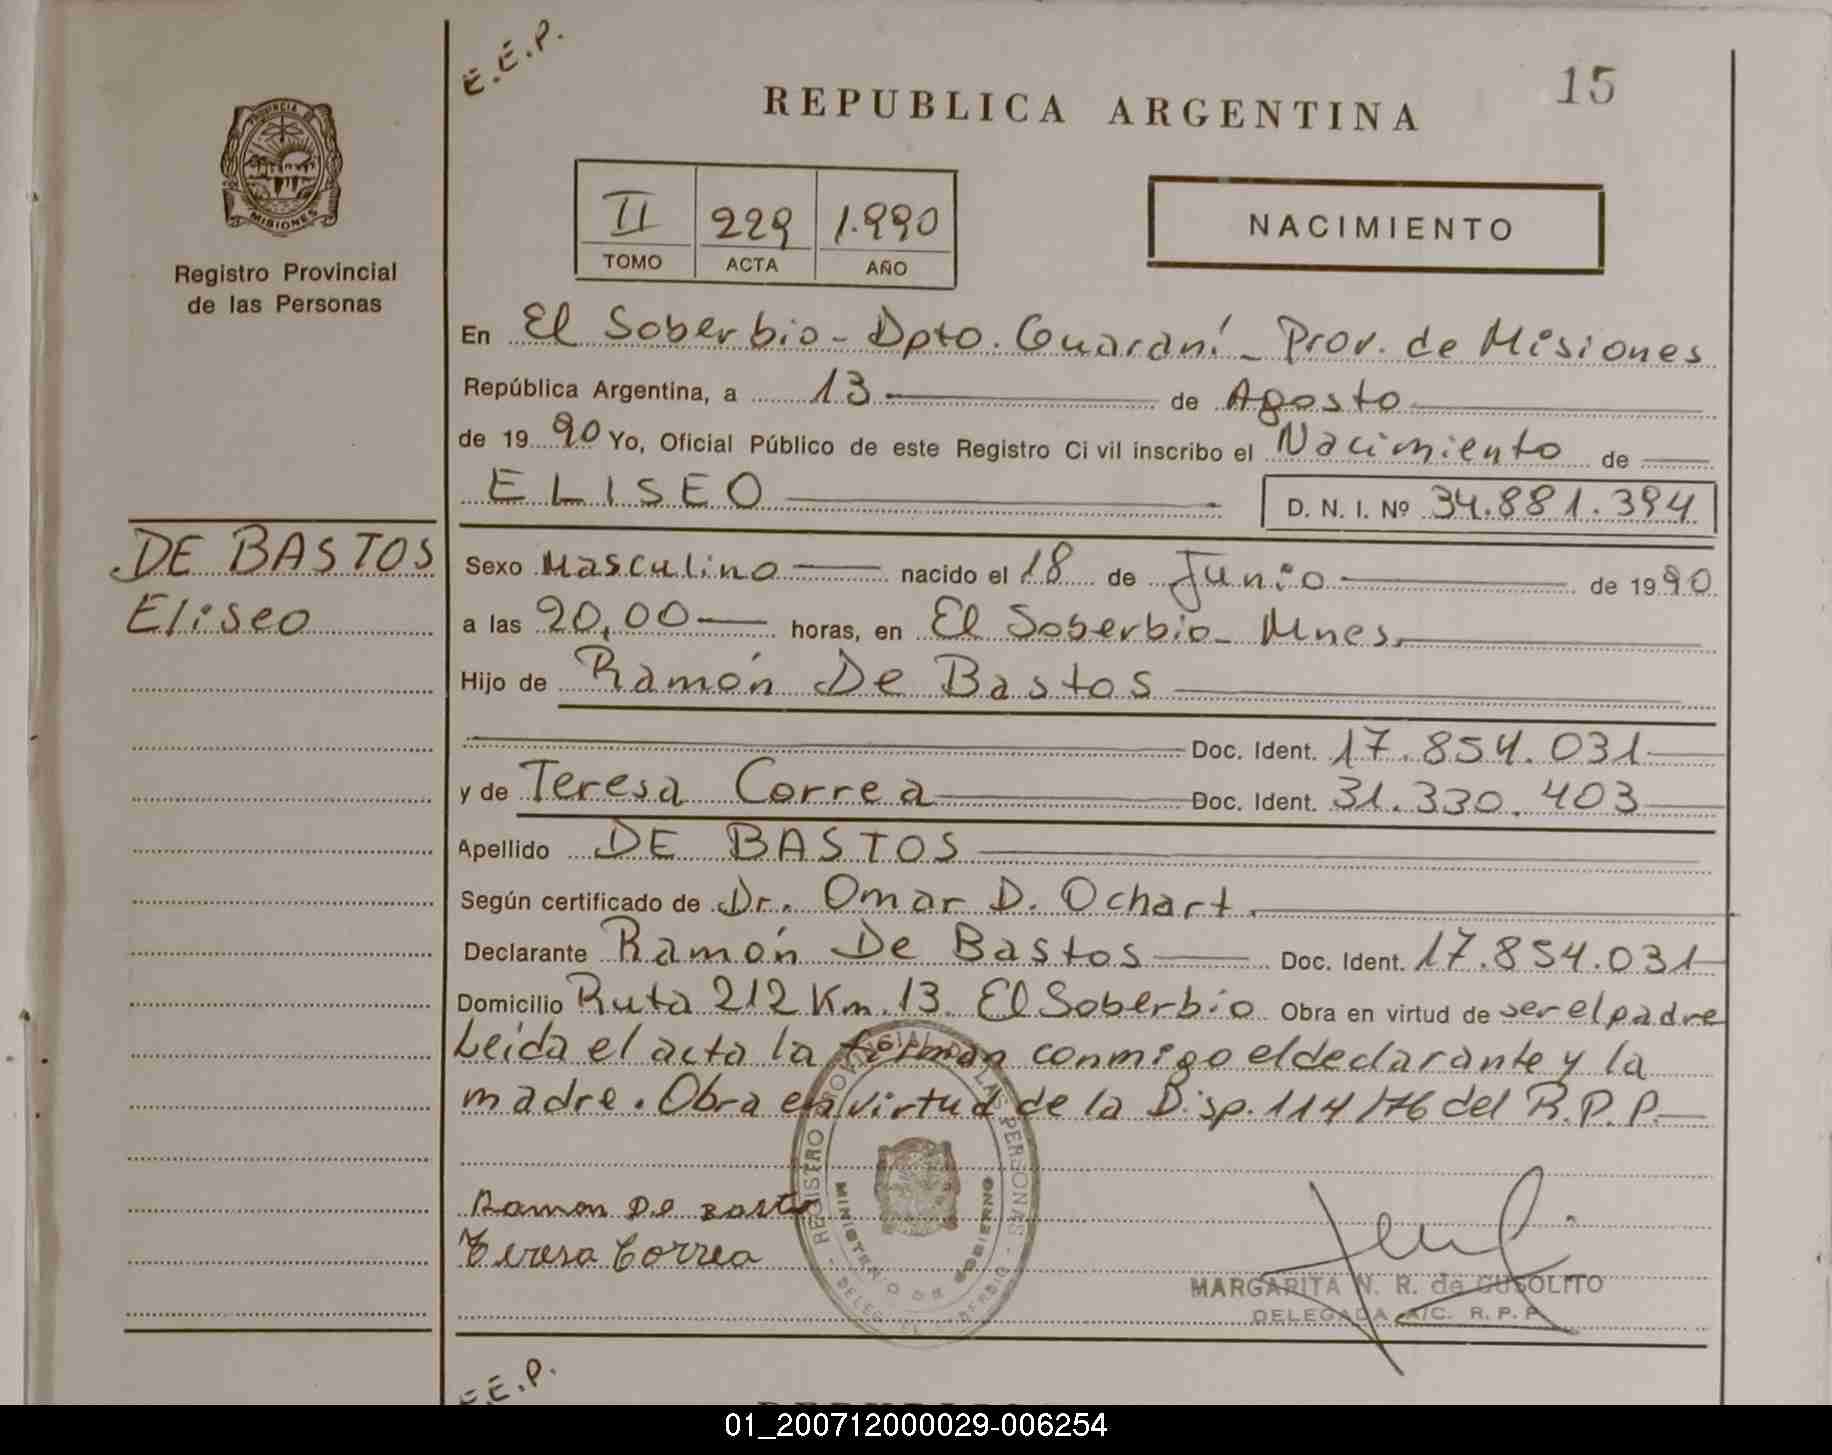 E.E.P.
15
REPUBLICA ARGENTINA
PROVINCIA DE
MISIONES
Registro Provincial
de las Personas
II 229 1.990
TOMO ACTA AÑO
NACIMIENTO
En El Soberbio - Dpto. Guaraní - Prov. de Misiones
República Argentina, a 13 de Agosto
de 19 90 Yo, Oficial Público de este Registro Civil inscribo el Nacimiento de
ELISEO D. N. I. Nº 34.881.394
DE BASTOS
Eliseo
Sexo Masculino nacido el 18 de Junio de 1990
a las 20,00 horas, en El Soberbio - Mnes.
Hijo de Ramón De Bastos
Doc. Ident. 17.854.031
y de Teresa Correa Doc. Ident. 31.330.403
Apellido DE BASTOS
Según certificado de Dr. Omar D. Ochart.
Declarante Ramón De Bastos Doc. Ident. 17.854.031
Domicilio Ruta 212 Km. 13. El Soberbio Obra en virtud de ser el padre
Leída el acta la firman conmigo el declarante y la
madre. Obra en virtud de la Disp. 114/76 del R.P.P.
Ramon De Basto
Teresa Correa
REGISTRO PROVINCIAL DE LAS PERSONAS
MINISTERIO DE GOBIERNO
DELEG. EL SOBERBIO
MARGARITA N. R. de GUSOLITO
DELEGADA A/C. R. P. P.
E.E.P.
01_200712000029-006254